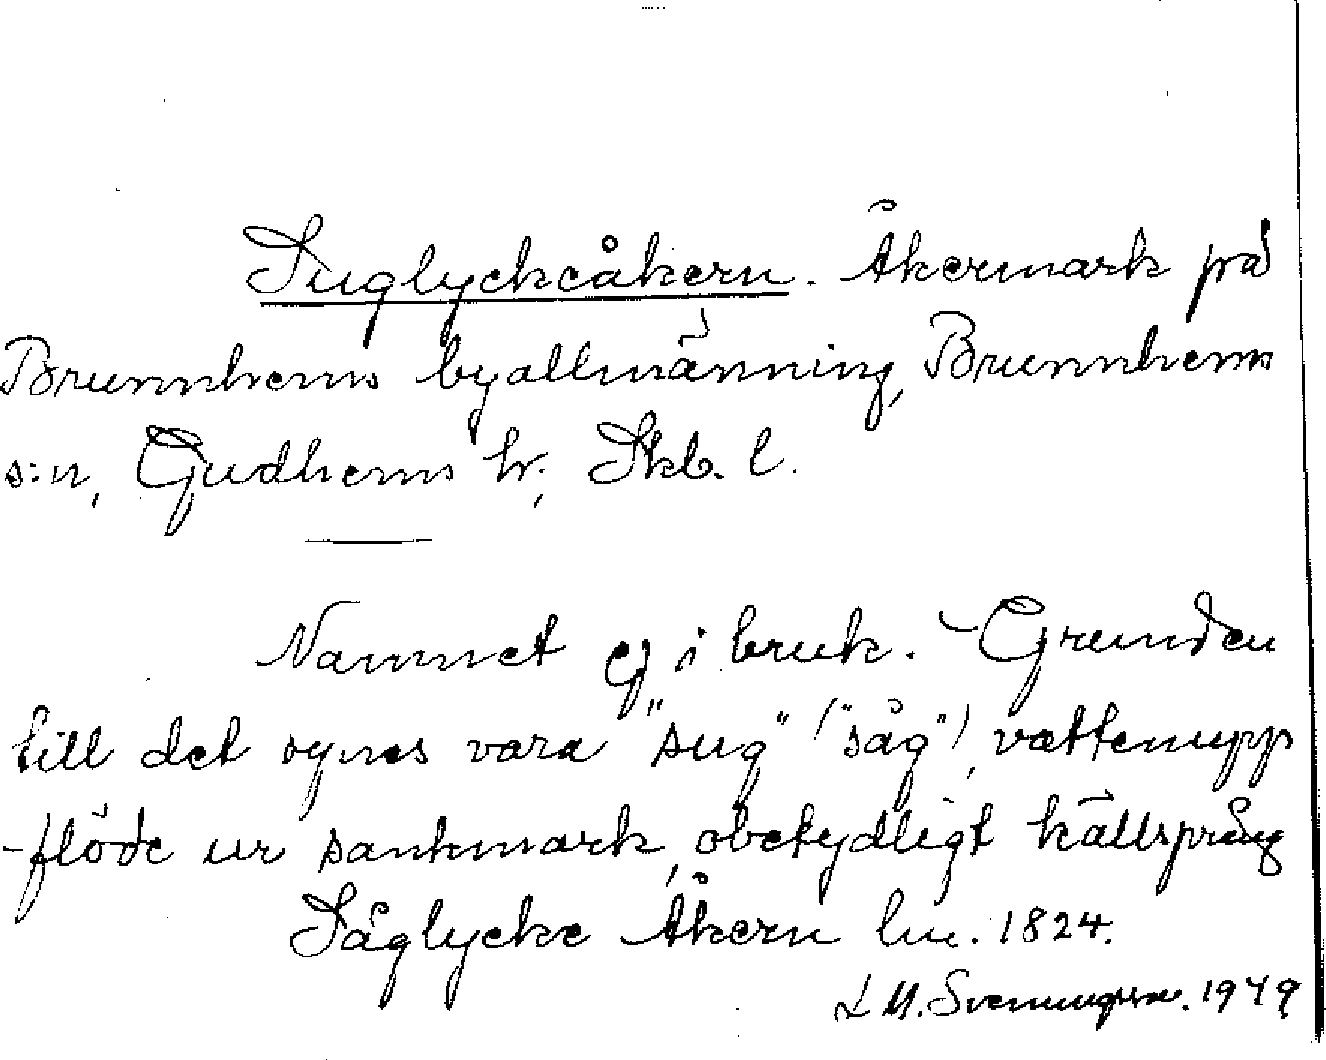 Suglyckeåkern. Åkermark på
Brunnhems byallmänning, Brunnhems
s:n, Gudhems hr., Skb. l.
Namnet ej i bruk. - Grunden
till det synes vara "sug" ("såg"), vattenupp
-flöde ur sankmark, obetydligt källsprång
Såglycke Åkern lm. 1824.
L M. Svenungsson. 1949